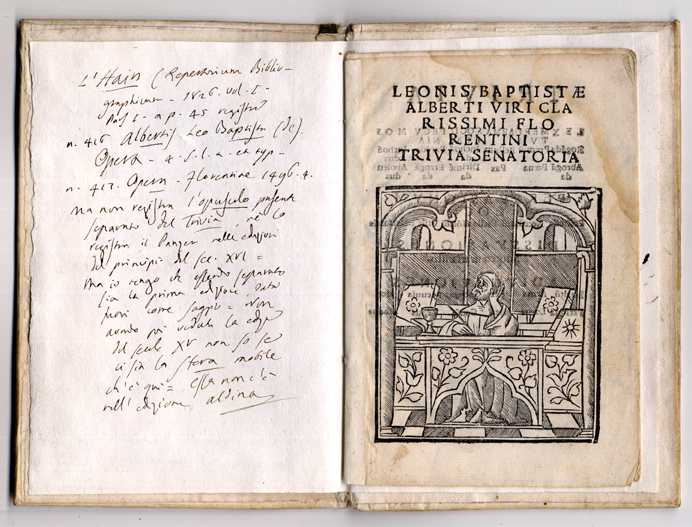 L'Hain (Repertorium Biblio-
graphicum - 1826. Vol. I -
Pars I - a p. 45 registra
n. 416 Albertis Leo Baptista (de).
Opera - 4. s. l. a. et typ.
n. 417. Opera - Florentine 1496. 4.
ma non registra l'opuscolo presente
separato del Trivia nè lo
registra il Panzer nelle edizioni
del principio del sec. XVI =
ma io che separato
sia la prima edizione data
fuori come saggio = Non
avendo poi veduta la
del secolo XV non so se
vi sia la sfera mobile
ch'è qui = essa non c'è
nell'edizione aldina
LEONIS BAPTISTÆ
ALBERTI VIRI CLA
RISSIMI FLO
RENTINI
TRIVIA SENATORIA